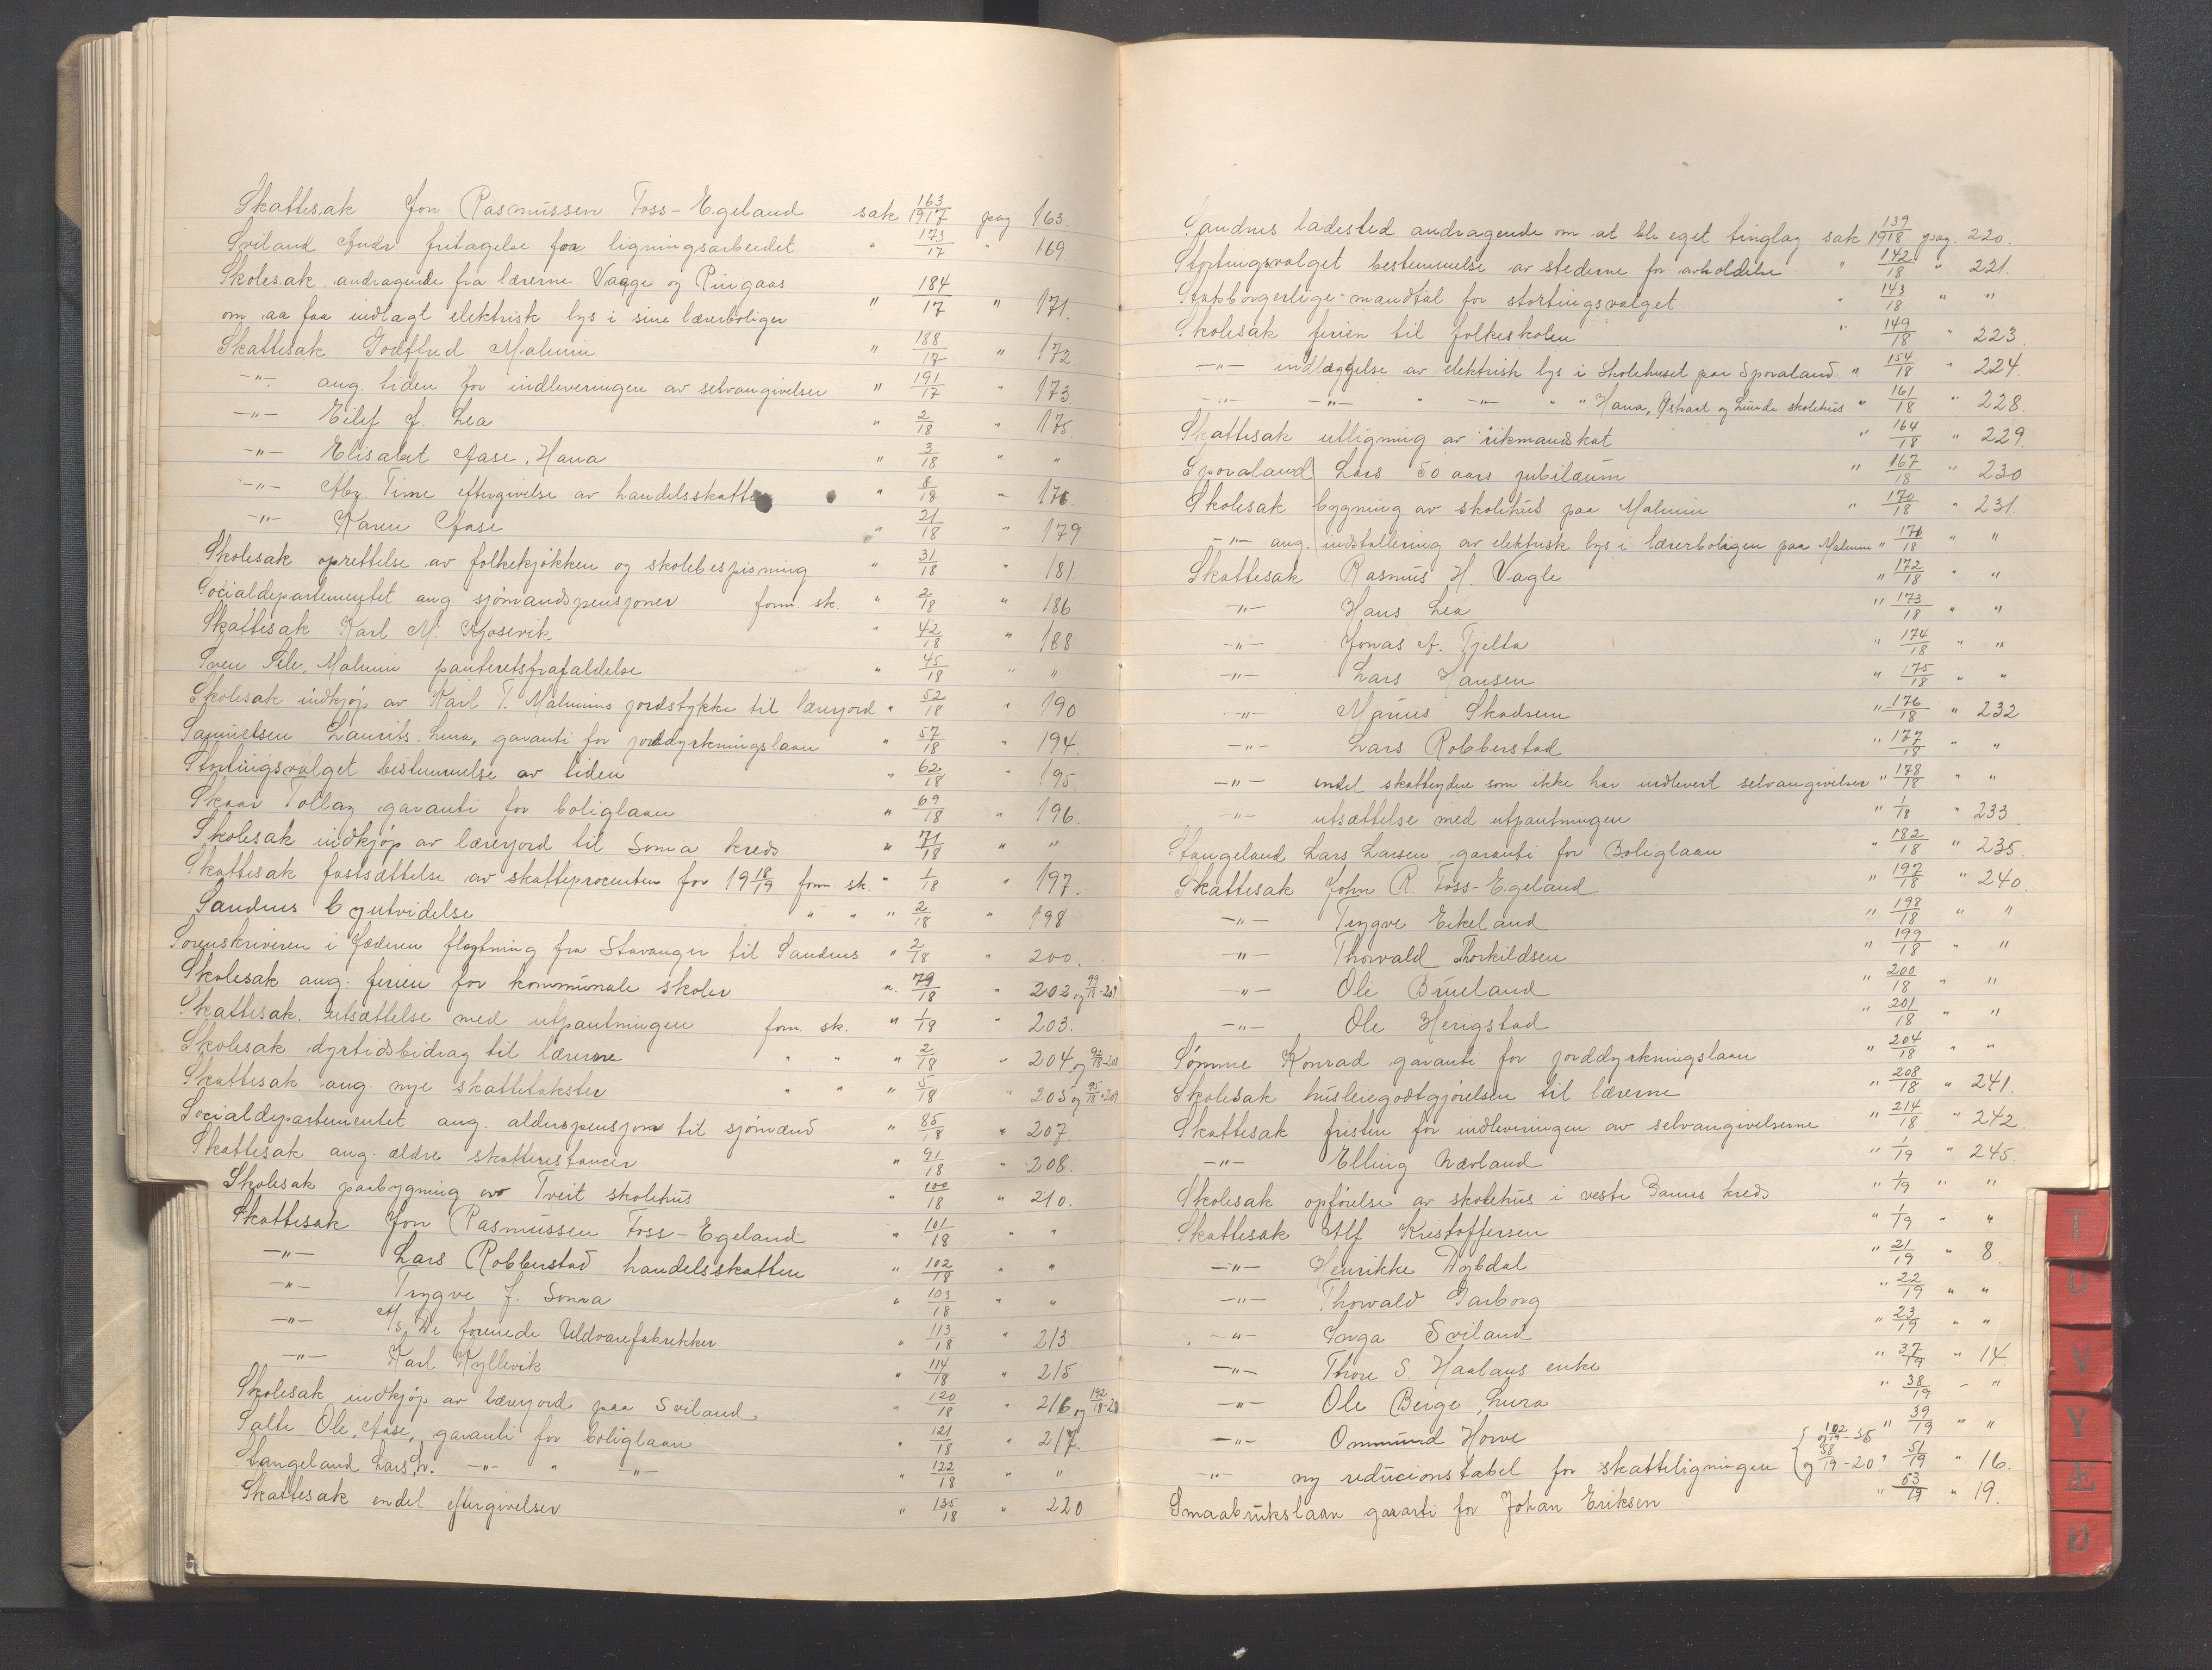 Skattesak Jon Rasmussen Foss-Egeland sak 163/1917 pag 163.
Sviland Andr fritagelse for ligningsarbeidet " 173/17 " 169.
Skolesak andragende fra lærerne Vaage og Ringaas 184
om aa faa indlagt elektrisk lys i sine lærerboliger " 17 " 171.
Skattesak Godtfred Malmin " 188/17 " 172
-"- ang. tiden for indleveringen av selvangivelser " 191/17 " 173
-"- Eilef J. Lea " 2/18 " 175
-"- Elisabet Aase, Hana " 3/18 " "
-"- Time eftergivelse av handelsskatten " 8/18 " 176
-"- Karen Aase " 21/18 " 179
Skolesak oprettelse av folkekjøkken og skolebespisning " 31/18 " 181
Socialdepartementet ang. sjømandspensjoner form. sk. " 2/18 " 186
Skattesak Karl M. " 42/18 " 188
Sven Malmin panteretsfrafaldelse " 45/18 " "
Skolesak indkjøp av Karl T. Malmins jordstykke til lærerjord " 52/18 " 190
Samuelsen Laurits. Lura, garanti for jorddyrkningslaan " 57/18 " 194.
Stortingsvalget bestemmelse av tiden " 62/18 " 195.
Skaar Tollag garanti for boliglaan " 69/18 " 196.
Skolesak indkjøp av lærerjord til Soma kreds " 71/18 " "
Skattesak fastsættelse av skatteprocenten for 1918/19 form. sk. " 1/18 " 197.
Sandnes Byutvidelse " " " 2/18 " 198
Sorenskriveren i Jæderen flytning fra Stavanger til Sandnes " 2/18 " 200.
Skolesak ang. ferien for kommunale skoler " 79/18 " 202 og 99/18-209
Skattesak. utsættelse med utpantningen form. sk. " 1/18 " 203.
Skolesak dyrtidsbidrag til lærerne " " " 2/18 " 204 og
Skattesak ang. nye skattetakster " " " 5/18 " 205 og 95/18-209
Socialdepartementet ang. alderspensjon til sjømænd " 85/18 " 207.
Skattesak ang. ældre skatterestancer " 91/18 " 208.
Skolesak paabygning av Tveit skolehus " 100/18 " 210.
Skattesak Jon Rasmussen Foss-Egeland " 101/18 " "
-"- Lars Robberstad handelsskatten " 102/18 " "
-"- Trygve J. Soma " 103/18 " "
-"- A/s De forenede Uldvarefabrikker " 113/18 " 213
-"- Karl Kyllevik " 114/18 " 215
Skolesak indkjøp av lærerjord paa Sviland. " 120/18 " 216 og 192/18
Salte Ole, Aase, garanti for boliglaan " 121/18 " 217.
Stangeland Lars -"- " -"- " 122/18 " "
Skattesak endel eftergivelser " 135/18 " 220
Sandnes ladested andragende om at bli eget tinglag sak 139/1918 pag. 220.
Stortingsvalget bestemmelse av stederne for avholdelse " 142/18 " 221.
Statsborgerlige mandtal for stortingsvalget " 143/18 " "
Skolesak ferien til folkeskolen " 149/18 " 223.
-"- indlæggelse av elektrisk lys i skolehuset paa Sporaland " 154/18 " 224
-"- -"- " -"- " " Hana, Østraat og Lunde skolehus " 161/18 " 228.
Skattesak utligning av rikmandskat " 164/18 " 229.
Sporaland Lars 50 aars jubilæum " 167/18 " 230
Skolesak bygning av skolehus paa Malmin " 170/18 " 231.
-"- ang. indstallering av elektrisk lys i lærerboligen paa Malmin " 171/18 " "
Skattesak Rasmus H. Vagle " 172/18 " "
-"- Hans Lea " 173/18 " "
-"- Jonas A. Tjelta " 174/18 " "
-"- Lars Hansen " 175/18 " "
-"- Marius Skadsem " 176/18 " 232
-"- Lars Robberstad " 177/18 " "
-"- endel skatteydere som ikke har indlevert selvangivelser " 178/18 " "
-"- utsættelse med utpantningen " 1/18 " 233.
Stangeland Lars Larsen, garanti for Boliglaan " 182/18 " 235.
Skattesak John R. Foss-Egeland " 197/18 " 240.
-"- Trygve Eikeland " 198/18 " "
-"- Thorvald Thorkildsen " 199/18 " "
-"- Ole Brueland " 200/18 " "
-"- Ole Herigstad " 201/18 " "
Sømme Konrad garanti for jorddyrkningslaan " 204/18 " "
Skolesak husleiegodtgjørelsen til lærerne " 208/18 " 241.
Skattesak fristen for indleveringen av selvangivelserne " 214/18 " 242.
-"- Elling Nærland " 1/19 " 245.
Skolesak opførelse av skolehus i vestre Banes kreds " 1/19 " "
Skattesak Alf Kristoffersen " 1/19 " "
-"- Henrikke Dybdal " 21/19 " 8.
-"- Thorvald Garborg " 22/19 " "
-"- Inga Sviland " 23/19 " "
-"- Thore S. Haalans enke " 37/19 " 14.
-"- Ole Berge, Lura " 38/19 " "
-"- Ommund Hove " 39/19 " "
-"- ny reducionstabel for skatteligningen { og 102/19-35 og 58/19-20 " 51/19 " 16.
Smaabrukslaan garanti for Johan Eriksen " 53/19 " 19.
T
U
V
Y
Æ
Ø